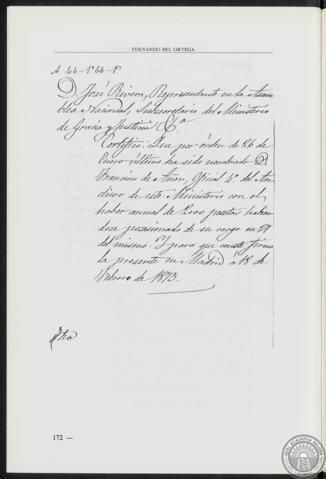 FERNANDO BEL ORTEGA
A. 46-1º 66-P
D. José Rivera, Representante en la Asam
blea Nacional, Subsecretario del Ministerio
de Gracia y Justicia &ª
Certifico: Que por órden de 26 de
Enero último ha sido nombrado D.
Francisco de Asis, Oficial 4º del Ar
chivo de este Ministerio con el
haber anual de 2.000 pesetas habién
dose posesionado de su cargo en 28
del mismo. Y para que conste firmo
la presente en Madrid á 18 de
Febrero de 1873.
172 —